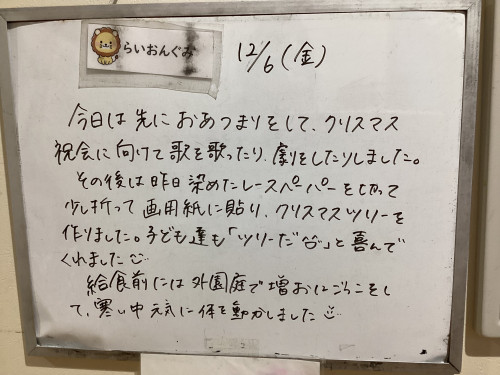 らいおんぐみ
12/6(金)
今日は先におあつまりをして、クリスマス
祝会に向けて歌を歌ったり、劇をしたりしました。
その後は昨日染めたレースペーパーを切って
少し折って画用紙に貼り、クリスマスツリーを
作りました。子ども達も「ツリーだ」と喜んで
くれました
給食前には外園庭で増おにごっこをし
て、寒い中元気に体を動かしました